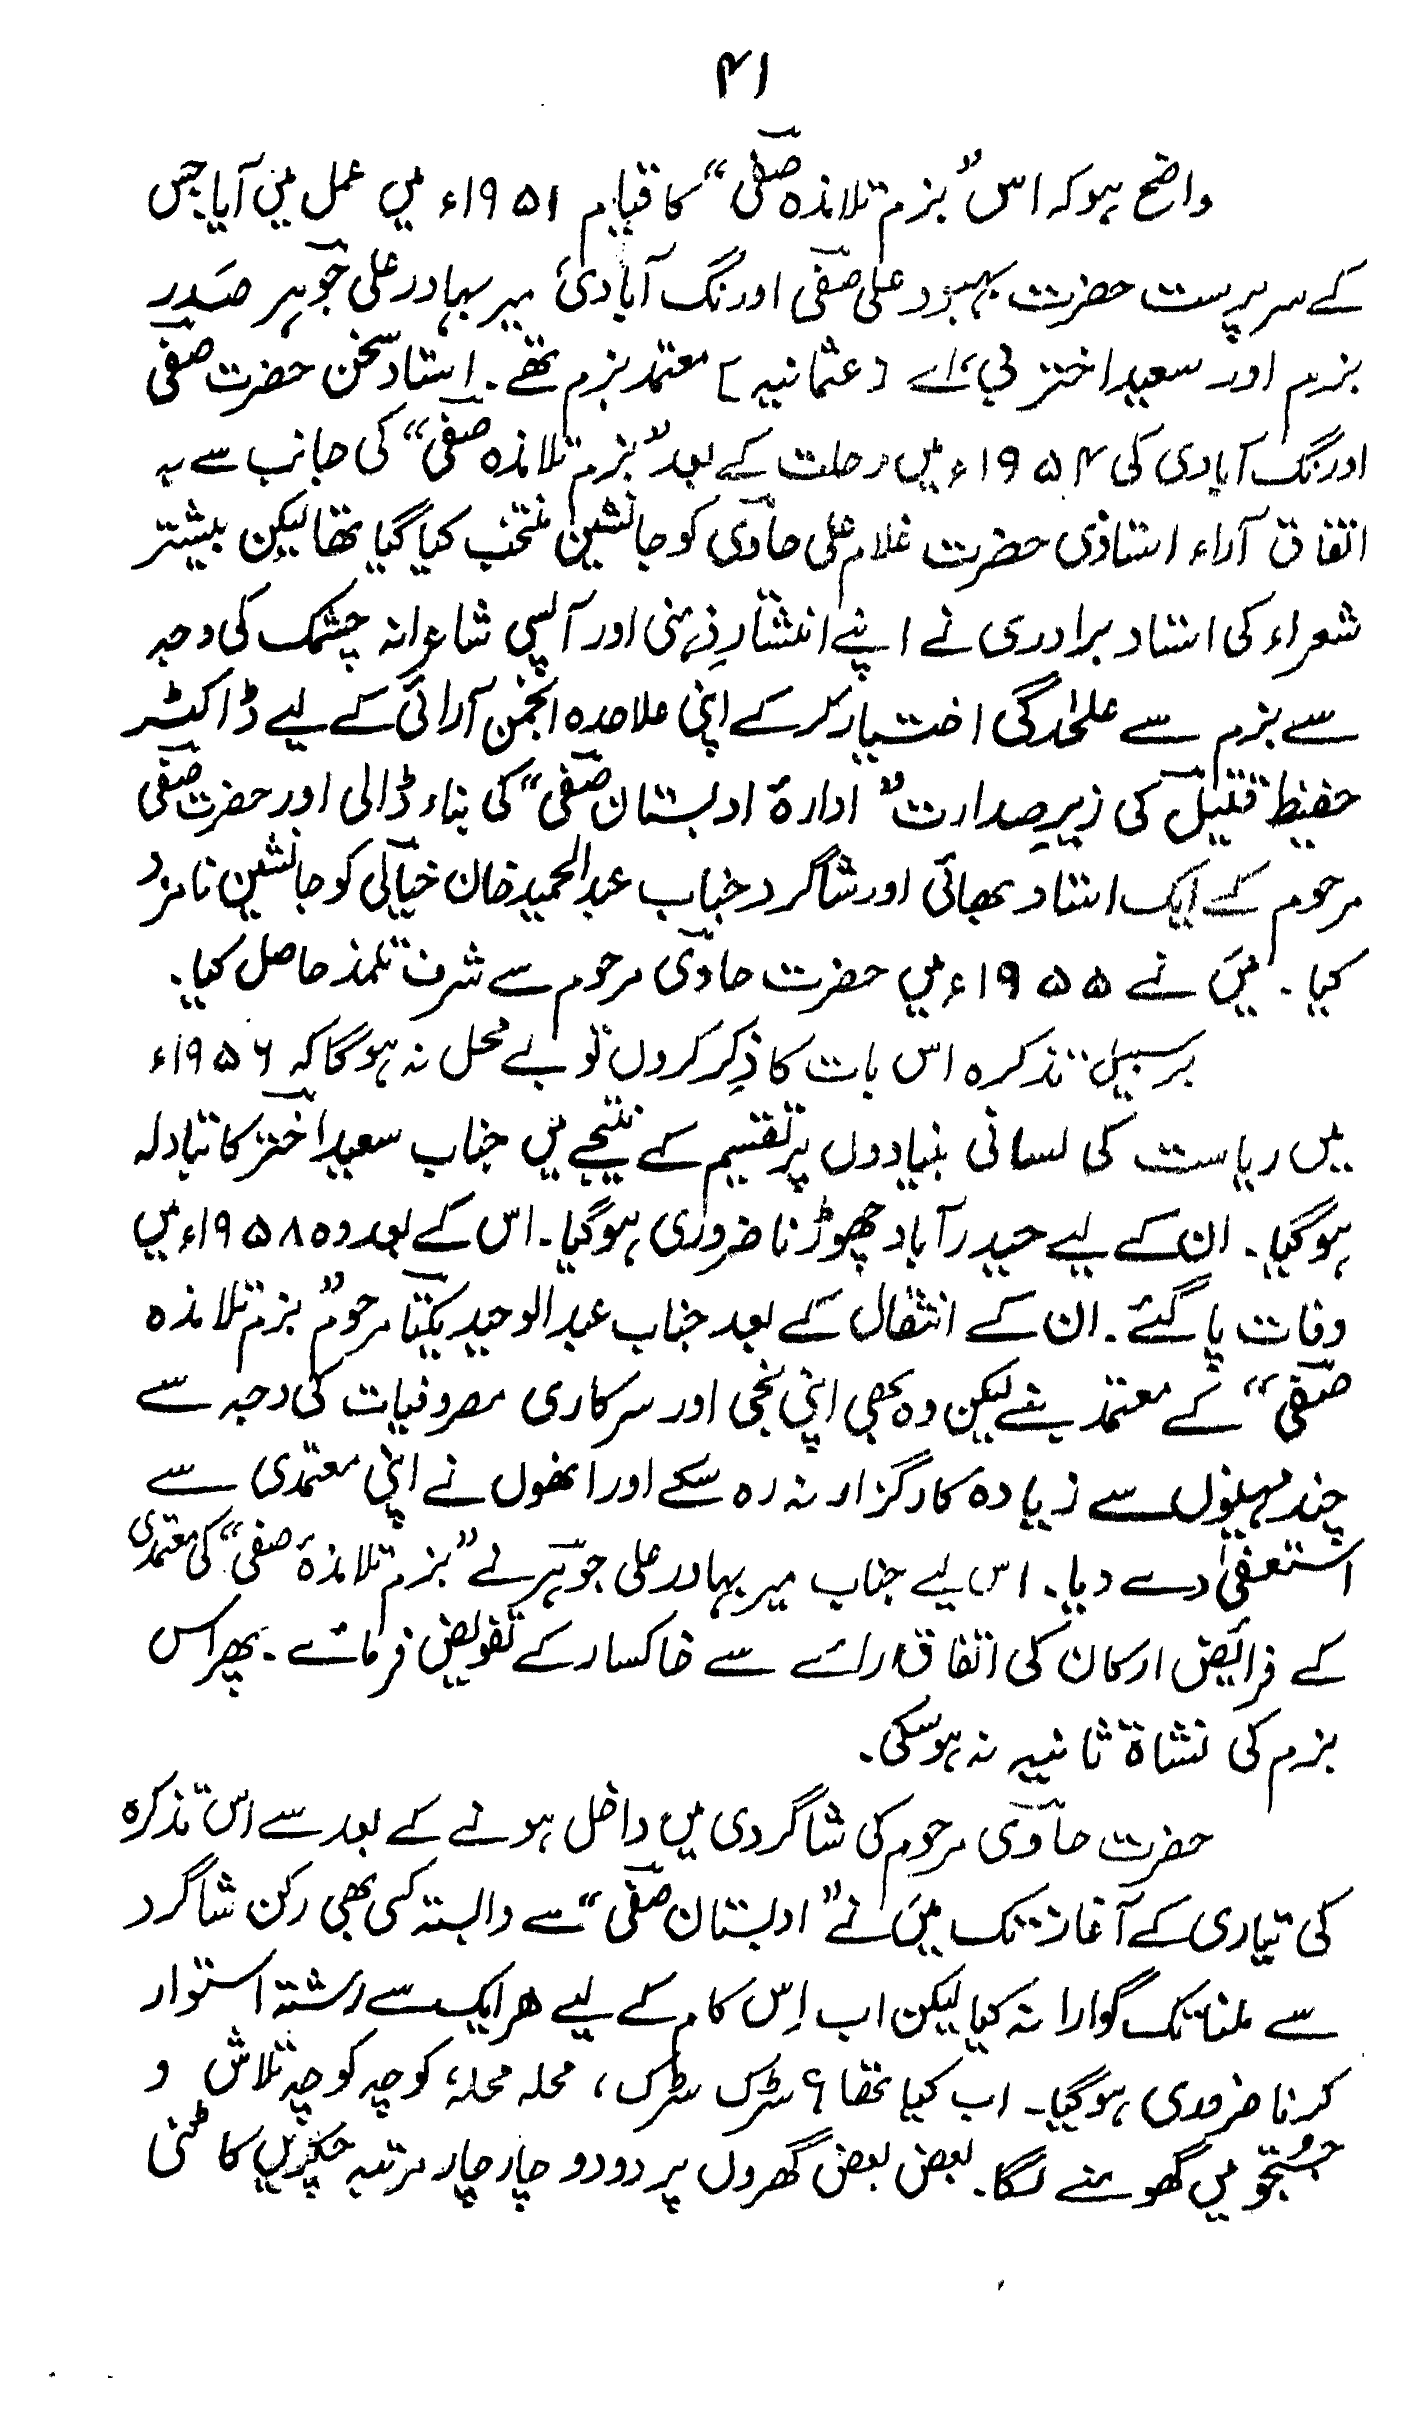 ۴۱
واضح ہو کہ اس "بزم تلامذہ صفی" کا قیام ۱۹۵۱ء میں عمل میں آیا جس
کے سرپرست حضرت بہبود علی صفی اورنگ آبادی، میر بہادر علی جوہر صدر
بزم اور سعید اختر بی، اے (عثمانیہ) معتمد بزم تھے۔ استاد سخن حضرت صفی
اورنگ آبادی کی ۱۹۵۴ء میں رحلت کے بعد "بزم تلامذہ صفی" کی جانب سے بہ
اتفاق آراء استاذی حضرت غلام علی حاوی کو جانشین منتخب کیا گیا تھا لیکن بیشتر
شعراء کی استاد برادری نے اپنے انتشارِ ذہنی اور آپسی شاعرانہ چشمک کی وجہ
سے بزم سے علحٰدگی اختیار کرکے اپنی علاحدہ انجمن آرائی کے لیے ڈاکٹر
حفیظ قتیل کی زیرِ صدارت "ادارۂ ادبستان صفی" کی بناء ڈالی اور حضرت صفی
مرحوم کے ایک استاد بھائی اور شاگرد جناب عبدالحمید خان خیالی کو جانشین نامزد
کیا۔ میں نے ۱۹۵۵ء میں حضرت حاوی مرحوم سے شرف تلمذ حاصل کیا۔
برسبیل تذکرہ اس بات کا ذِکر کروں تو بے محل نہ ہوگا کہ ۱۹۵۶ء
میں ریاست کی لسانی بنیادوں پر تقسیم کے نتیجے میں جناب سعید اختر کا تبادلہ
ہوگیا۔ ان کے لیے حیدرآباد چھوڑنا ضروری ہوگیا۔ اس کے بعد وہ ۱۹۵۸ء میں
وفات پا گئے۔ ان کے انتقال کے بعد جناب عبدالوحید یکتا مرحوم "بزم تلامذہ
صفی" کے معتمد بنے لیکن وہ بھی اپنی نجی اور سرکاری مصروفیات کی وجہ سے
چند مہینوں سے زیادہ کارگزار نہ رہ سکے اور انھوں نے اپنی معتمدی سے
استعفیٰ دے دیا۔ اس لیے جناب میر بہادر علی جوہر نے "بزم تلامذۂ صفی" کی معتمدی
کے فرائض ارکان کی اتفاق رائے سے خاکسار کے تفویض فرمائے۔ پھر اس
بزم کی نشاۃ ثانیہ نہ ہوسکی۔
حضرت حاوی مرحوم کی شاگردی میں داخل ہونے کے بعد سے اس تذکرہ
کی تیاری کے آغاز تک میں نے "ادبستان صفی" سے وابستہ کسی بھی رکن شاگرد
سے ملنا تک گوارا نہ کیا لیکن اب اِس کام کے لیے ہر ایک سے رشتہ استوار
کرنا ضروری ہوگیا۔ اب کیا تھا؟ سڑک سڑک، محلہ محلہ، کوچہ کوچہ تلاش و
جستجو میں گھومنے لگا۔ بعض بعض گھروں پر دو دو چار چار مرتبہ چکریں کاٹنی